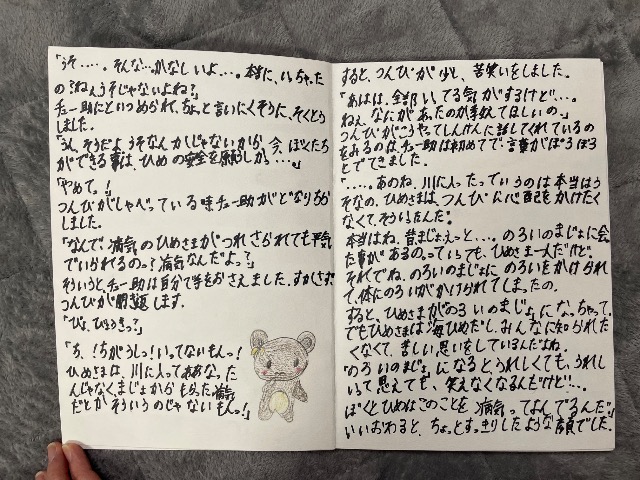 「うそ……。そんな…かなしいよ…。本当に、いっちゃった
の?ねぇうそじゃないよね?」
チュー助にといつめられて、ちょっと言いにくそうに、そくとう
しました。
「うん、そうだよ。うそなんかじゃないから、今、ぼくたち
ができる事は、ひめの安全を願うしか…。」
「やめて。!
つんびがしゃべっている時チュー助がどなりちら
しました。
「なんで、病気のひめさまがつれさられてても平気
でいられるのっ?病気なんだよっ?」
そういうと、チュー助は自分で口をおさえました。すかさず、
つんびが問題します。
「びょ、びょうきっ?」
「ち、!ちがうしっ!いってないもんっ!
ひめさまは、川に入ってああなった
んじゃなくまじょからもらった病気
だとかそういうのじゃないもんっ!」
すると、つんびが少し、苦笑いをしました。
「あはは。全部いってる気がするけど…。
ねぇ、なにがあったのか教えてほしいの。」
つんびがこうやってしんけんに話してくれているの
をみるのは、チュー助は初めてで、言葉がぽろぽろ
とでてきました。
「……。あのね、川に入ったっていうのは本当はう
そなの。ひめさまは、つんびに心配をかけたく
なくて、そういったんだ。
本当はね、昔まじょえっと…。のろいのまじょに会っ
た事があるのっていっても、ひめさま一人だけど。
それでね、のろいのまじょにのろいをかけられ
て、体にのろいがかけられてしまったの。
すると、ひめさまがのろいのまじょになっちゃって。
でもひめさまは海ひめだし、みんなに知られた
くなくて、苦しい思いをしているんだよね。
「のろいのまじょになるとうれしくても、うれし
いって思えても、笑えなくなるんだけど…。
ぼくとひめはこのことを「病気」ってよんでるんだ。」
いいおわると、ちょっとすっきりしたような顔でした。